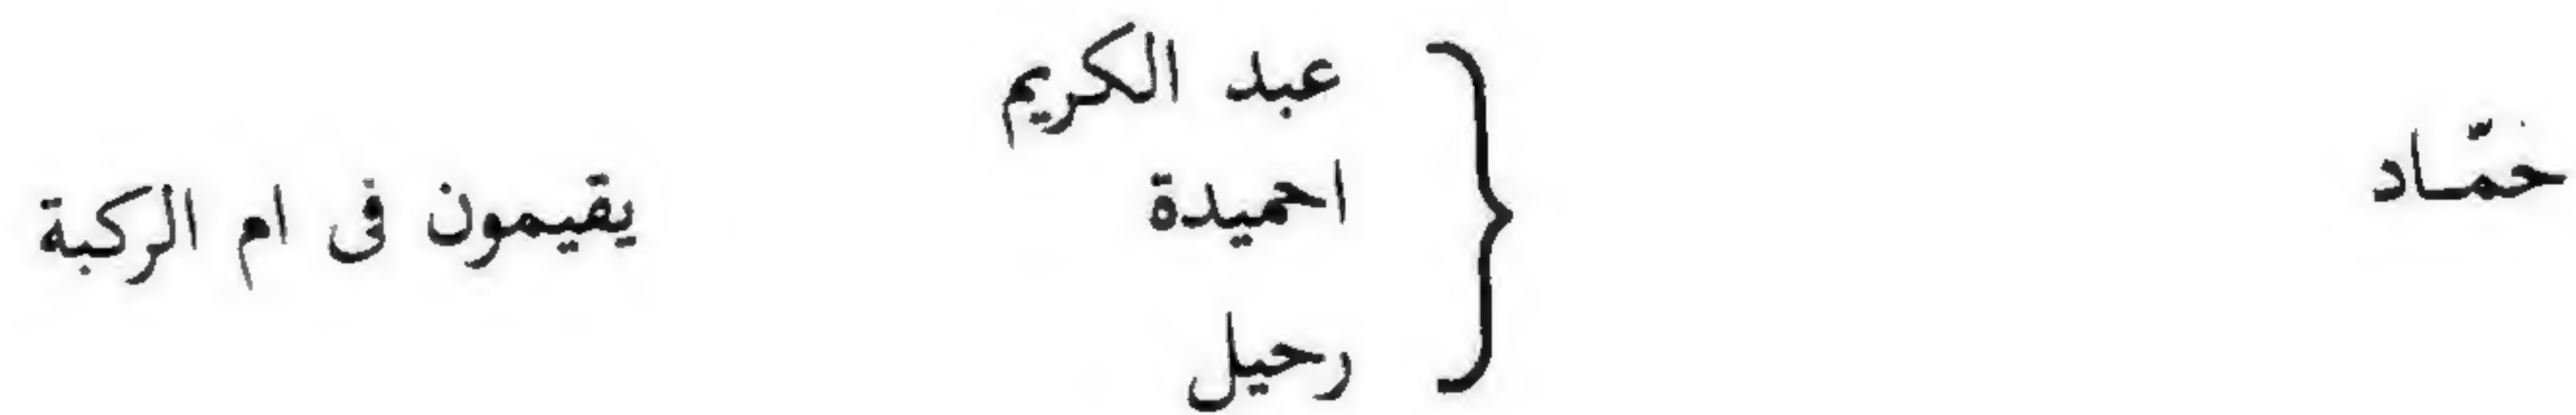 حمّاد
عبد الكريم
احميدة
رحيل
يقيمون فى ام الركبة